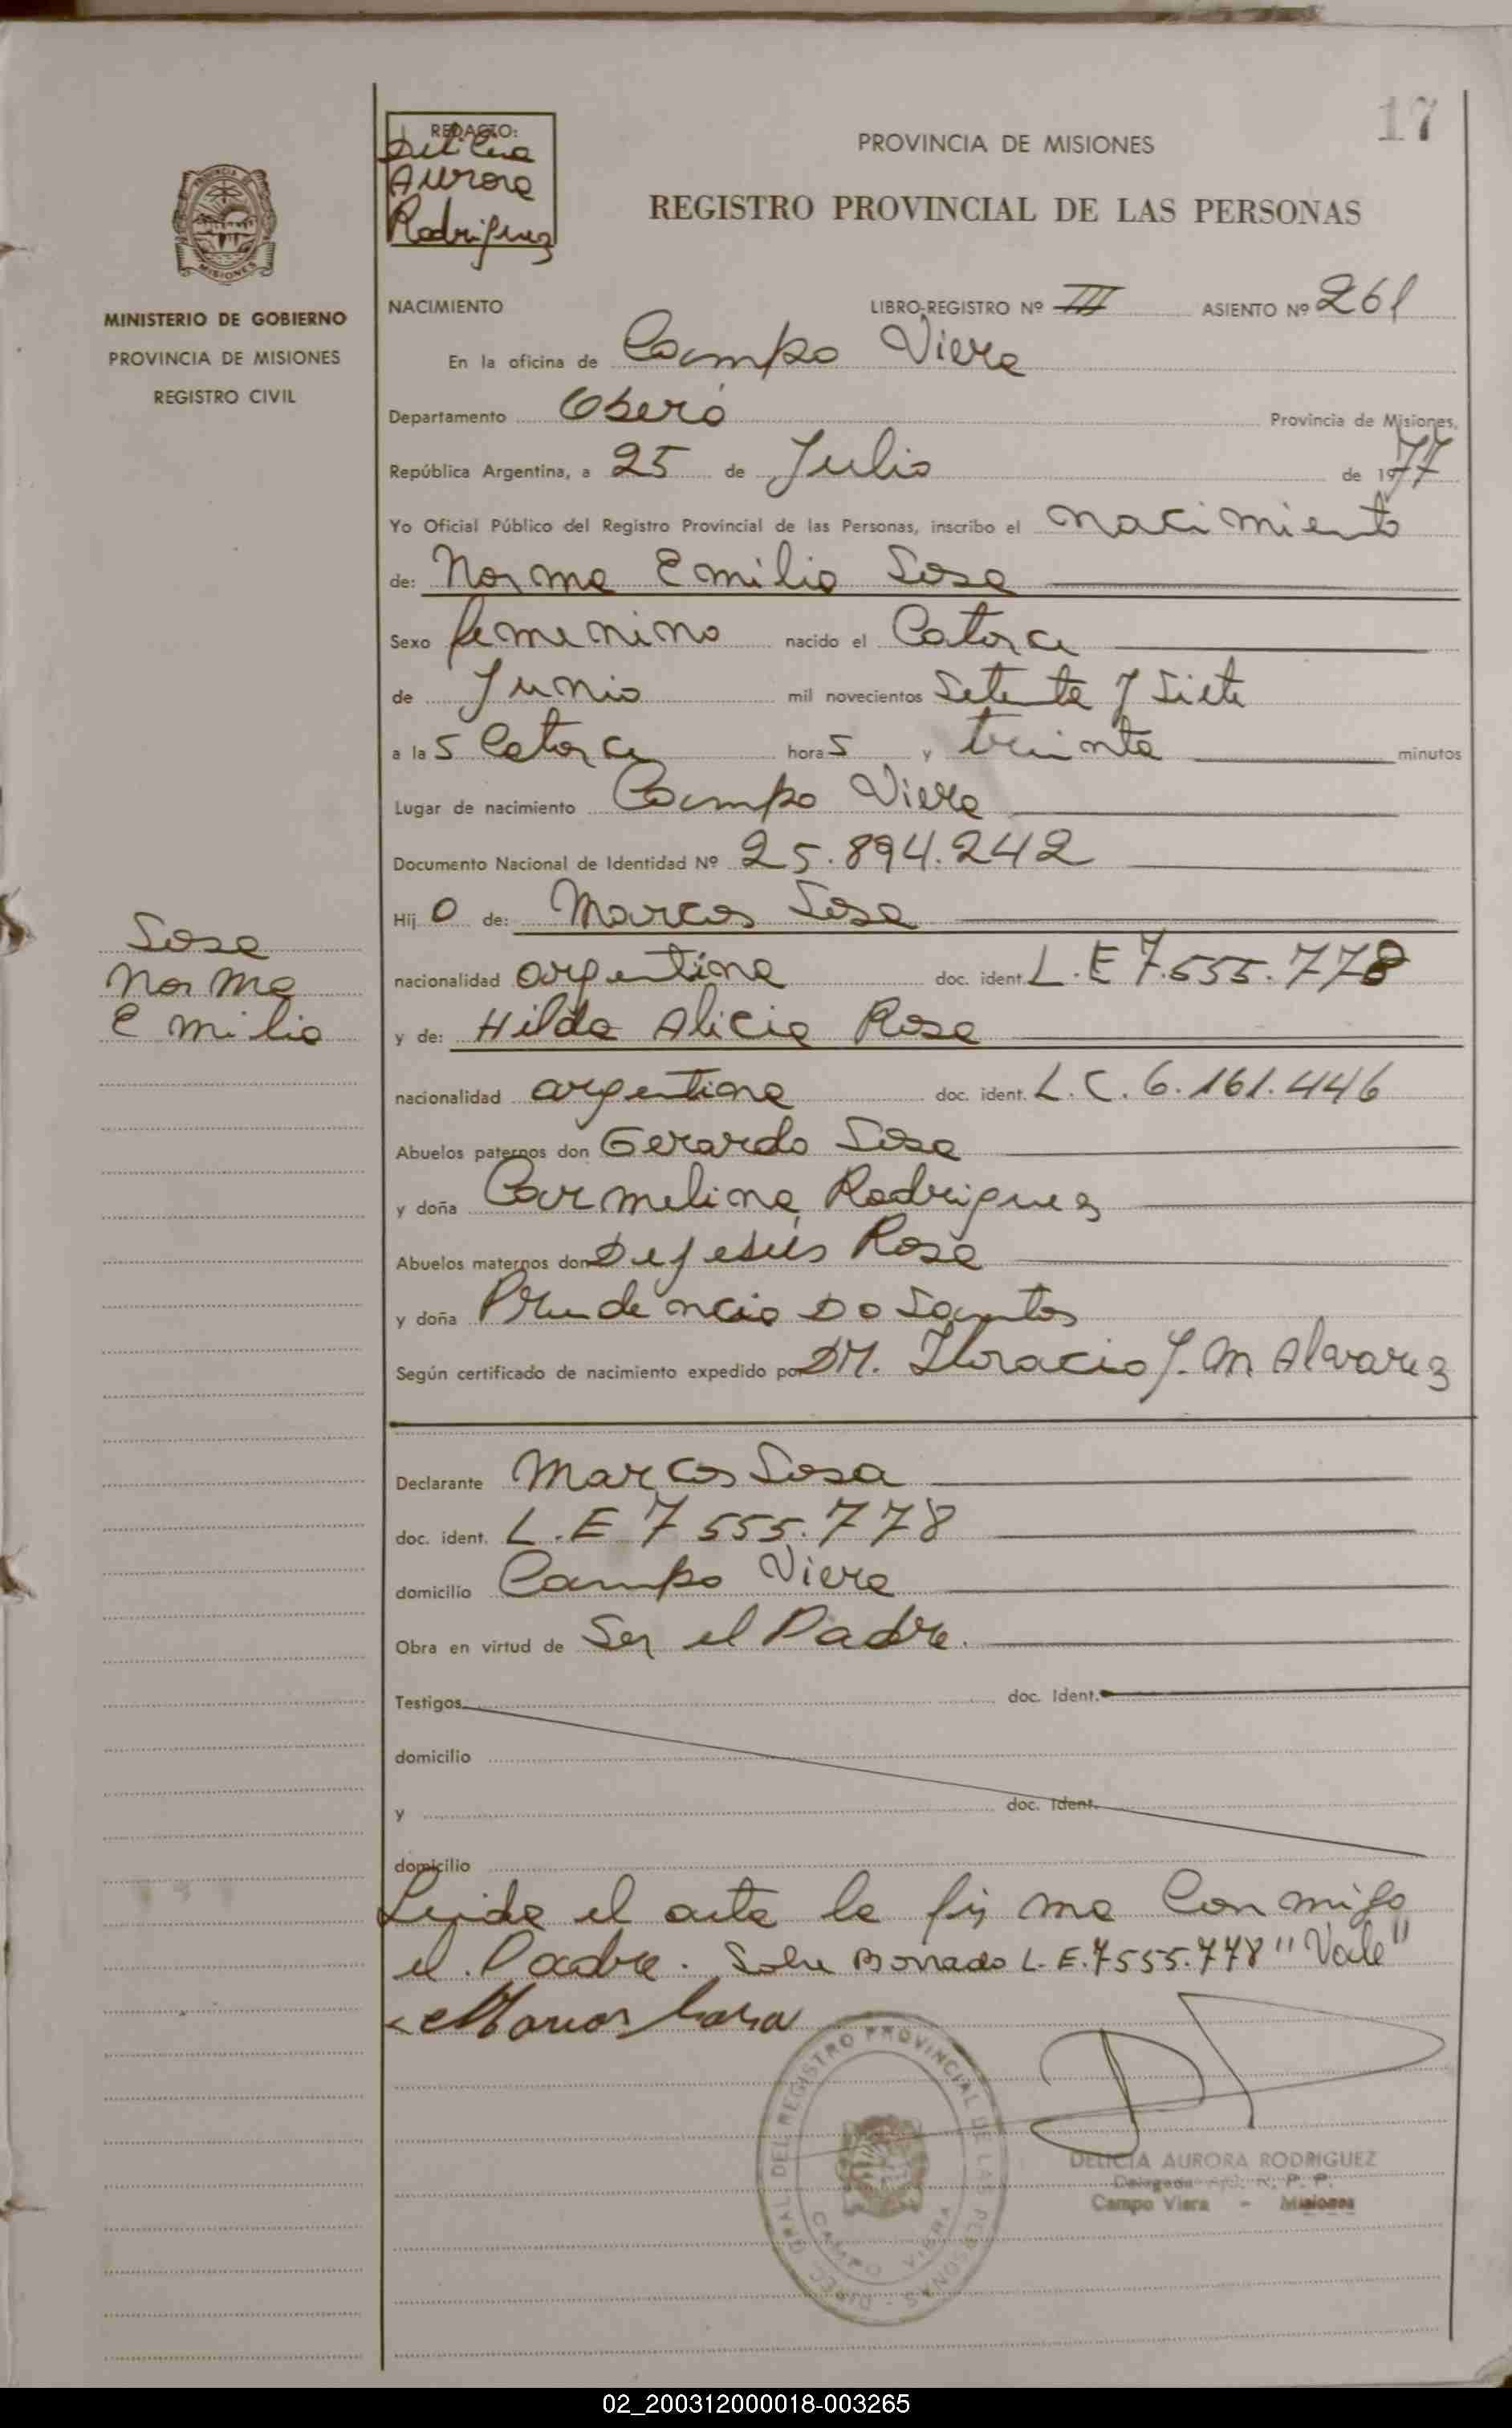 17
REDACTO:
Delicia
Aurora
Rodriguez
PROVINCIA DE MISIONES
REGISTRO PROVINCIAL DE LAS PERSONAS
MISIONES
MINISTERIO DE GOBIERNO
PROVINCIA DE MISIONES
REGISTRO CIVIL
NACIMIENTO LIBRO-REGISTRO Nº III ASIENTO Nº 261
En la oficina de Campo Viera
Departamento Oberá Provincia de Misiones,
República Argentina, a 25 de Julio de 1977
Yo Oficial Público del Registro Provincial de las Personas, inscribo el nacimiento
de: Norma Emilia Sosa
Sexo femenino nacido el Catorce
de Junio mil novecientos Setenta y Siete
a las Catorce horas y treinta minutos
Lugar de nacimiento Campo Viera
Documento Nacional de Identidad Nº 25.894.242
Hijo de: Marcos Sosa
Sosa
Norma
Emilia
nacionalidad argentina doc. ident. L.E 7.555.778
y de: Hilda Alicia Rosa
nacionalidad argentina doc. ident. L.C. 6.161.446
Abuelos paternos don Gerardo Sosa
y doña Carmelina Rodriguez
Abuelos maternos don Dejesús Rosa
y doña Prudencia Do Santos
Según certificado de nacimiento expedido por DR. Horacio J. M Alvarez
Declarante Marcos Sosa
doc. ident. L.E 7 555.778
domicilio Campo Viera
Obra en virtud de Ser el Padre.
Testigos doc. Ident.
domicilio
y doc. Ident.
domicilio
Leida el acta la firma Conmigo
el Padre. Sobre Borrado L.E.7555.778 "Vale"
Marcos Sosa
DIREC. GRAL. DEL REGISTRO PROVINCIAL DE LAS PERSONAS
CAMPO VIERA
DELICIA AURORA RODRIGUEZ
Delegada R. P. P.
Campo Viera - Misiones
02_200312000018-003265